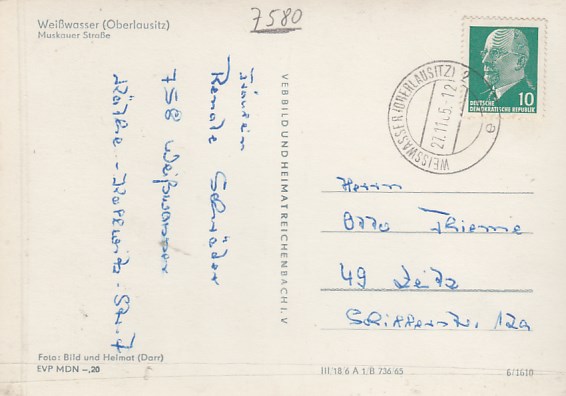 Weißwasser (Oberlausitz)
Muskauer Straße
7580
Fräulein
Renate Schröder
758 Weißwasser
Käthe-Kollwitz-Str. 7
VEB BILD UND HEIMAT REICHENBACH I. V
WEISSWASSER (OBERLAUSITZ) 2
27.11.65-12
e
10
DEUTSCHE
DEMOKRATISCHE REPUBLIK
Herrn
Otto Thieme
49 Zeitz
Schillerstr. 12a
Foto: Bild und Heimat (Darr)
EVP MDN –,20
III/18/6 A 1/B 736/65
6/1610